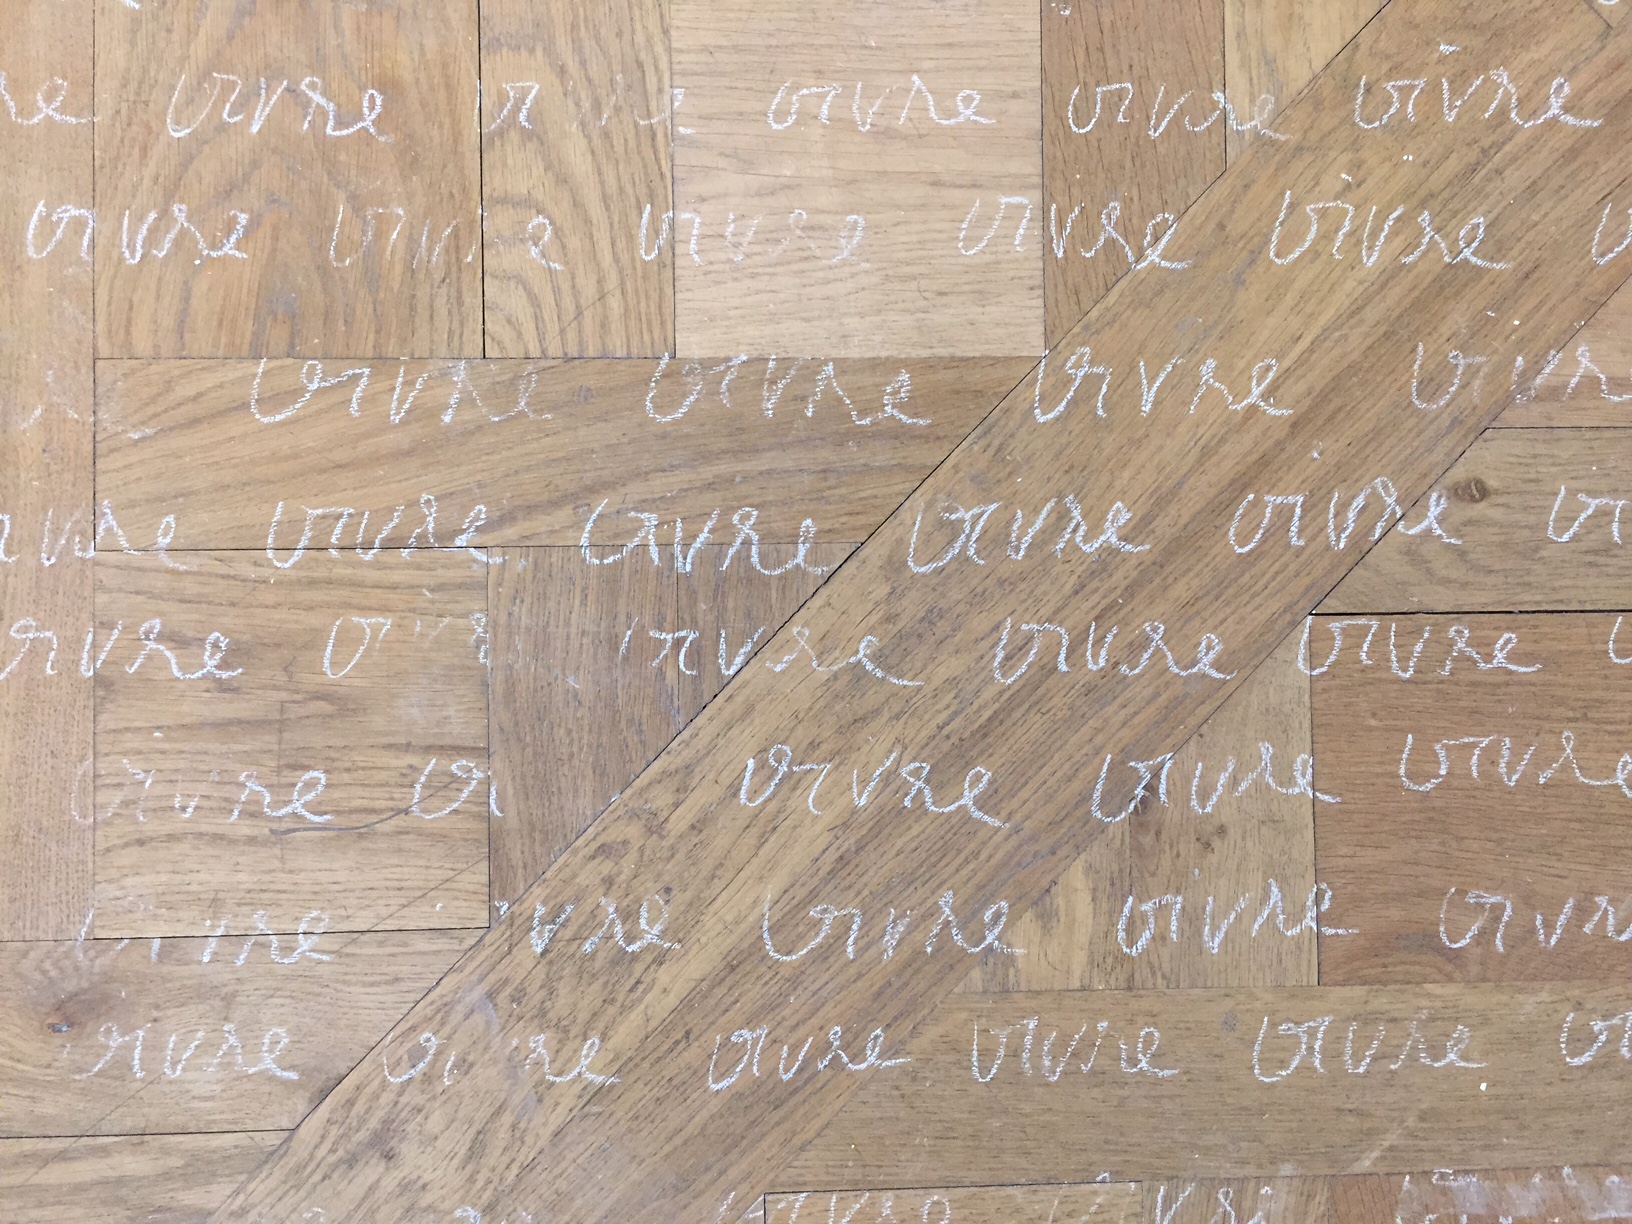 vivre vivre vivre vivre vivre
vivre vivre vivre vivre vivre
vivre vivre vivre vivre
vivre vivre vivre vivre vivre
vivre vivre vivre vivre vivre
vivre vivre vivre vivre
vivre vivre vivre vivre vivre
vivre vivre vivre vivre vivre